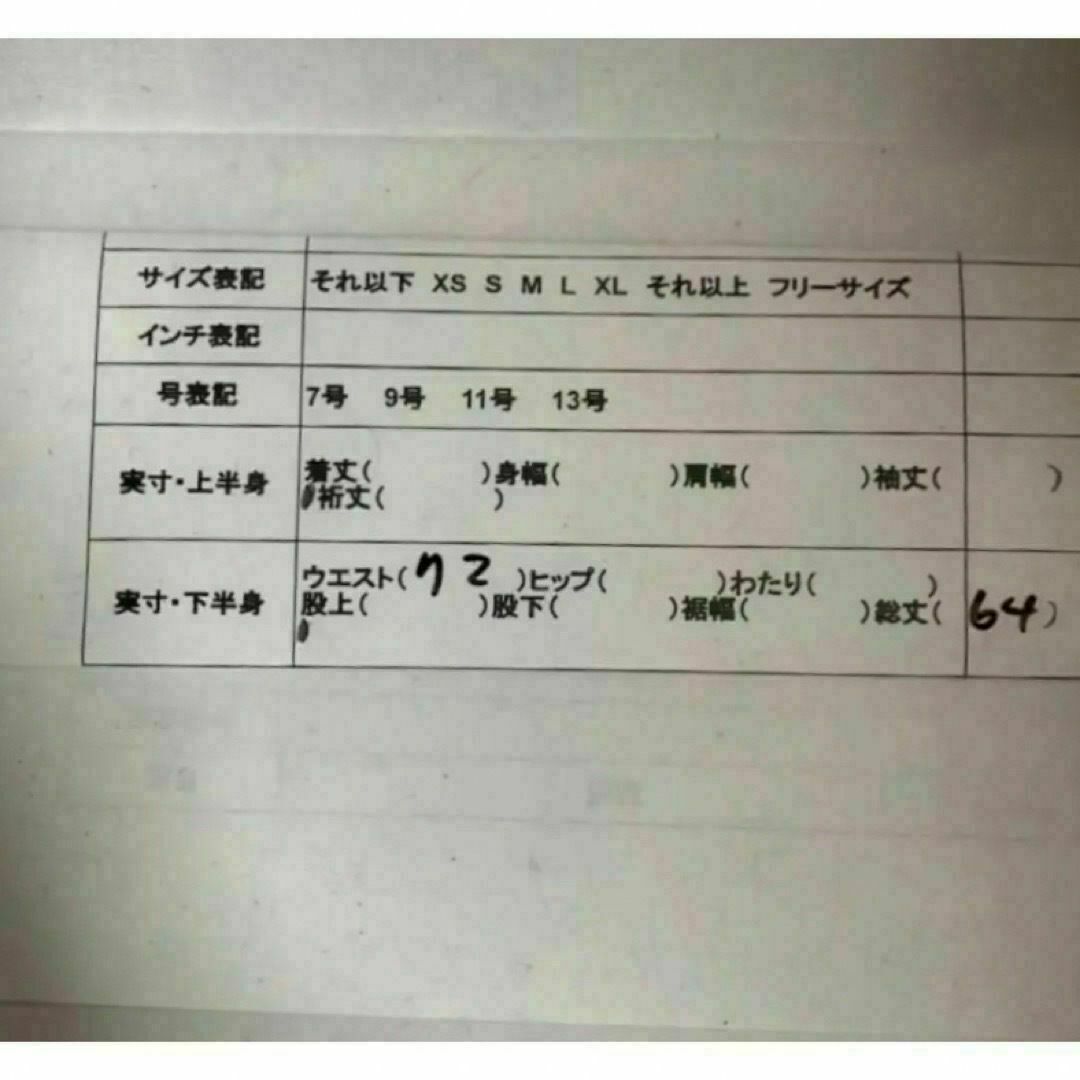 サイズ表記 それ以下 XS S M L XL それ以上 フリーサイズ
インチ表記
号表記 7号 9号 11号 13号
実寸・上半身 着丈( )身幅( )肩幅( )袖丈( )
裄丈( )
実寸・下半身 ウエスト(72 )ヒップ( )わたり( )
股上( )股下( )裾幅( )総丈(64)